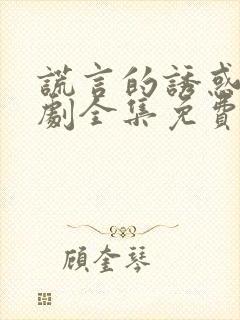 謊言的誘惑
劇全集免費
顾奎琴